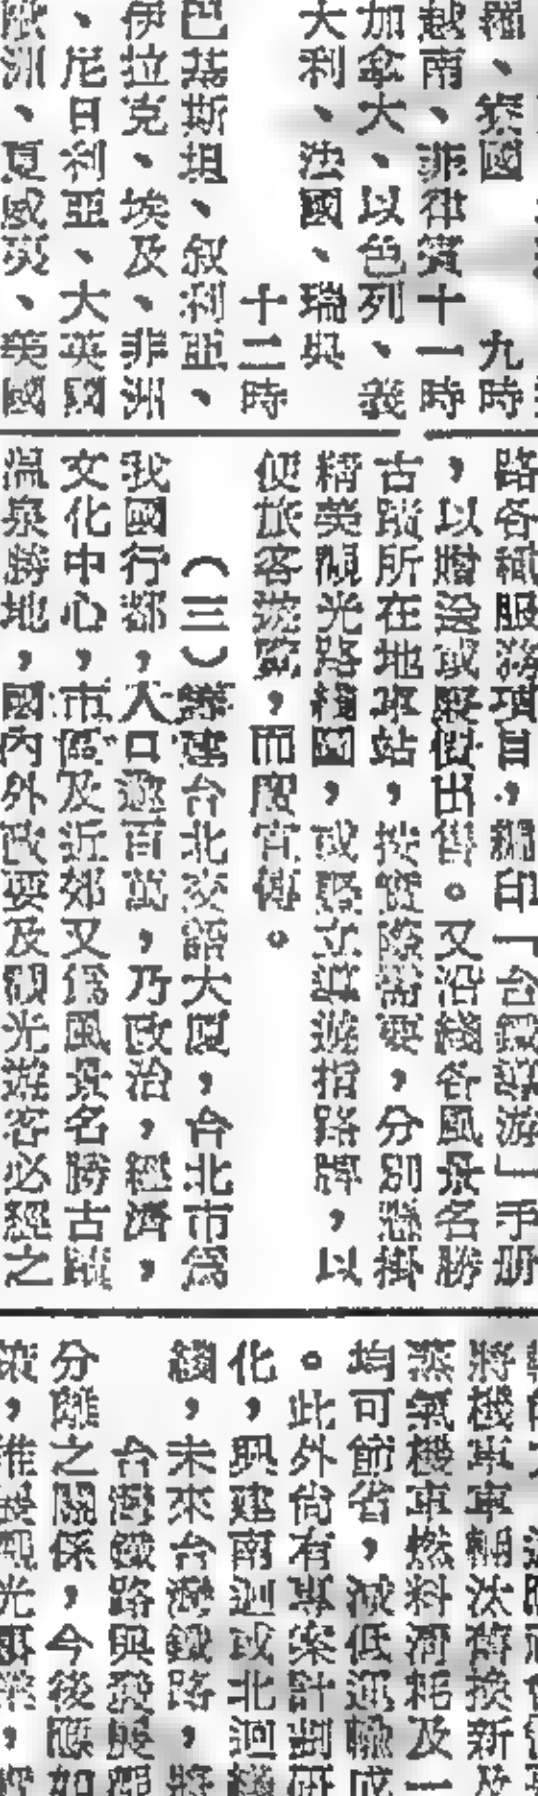 、泰國　　　九時
越南、菲律賓十一時
加拿大、以色列、義
大利、法國、瑞典
十二時
巴基斯坦、叙利亞、
伊拉克、埃及、非洲
、尼日利亞、大英國
洲、夏威夷、美國
路各種服務項目，編印「台鐵導游」手册
，以贈送或廉價出售。又沿綫各風景名勝
古蹟所在地車站，按實際需要，分別懸掛
精美觀光路綫圖，或豎立導遊指路牌，以
便旅客遊覽，而廣宣傳。
（三）籌建台北交誼大厦，台北市爲
我國行都，人口逾百萬，乃政治，經濟，
文化中心，市區及近郊又爲風景名勝古蹟
溫泉勝地，國內外政要及觀光遊客必經之
將機車車輛汰舊換新及
蒸氣機車燃料消耗及一
均可節省，減低運輸成
。此外尚有專案計劃研
化，興建南迴或北迴
綫，未來台灣鐵路，將
台灣鐵路與發展觀
分離之關係，今後應如
，推展觀光事業，